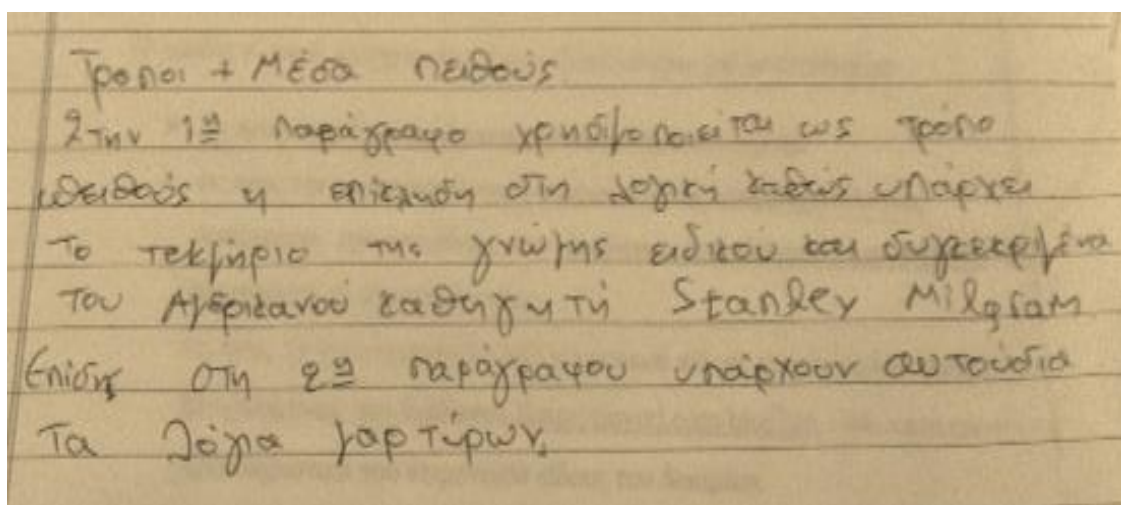 Τροποι + Μέσα πειθούς
Στην 1η παράγραφο χρησιμοποιείται ως τρόπο
πειθούς η επίκληση στη λογική καθώς υπάρχει
το τεκμήριο της γνώμης ειδικού και συγκεκριμένα
του Αμερικανού καθηγητή Stanley Milgram
Επίσης στη 2η παράγραφου υπάρχουν αυτούσια
τα λόγια μαρτύρων.